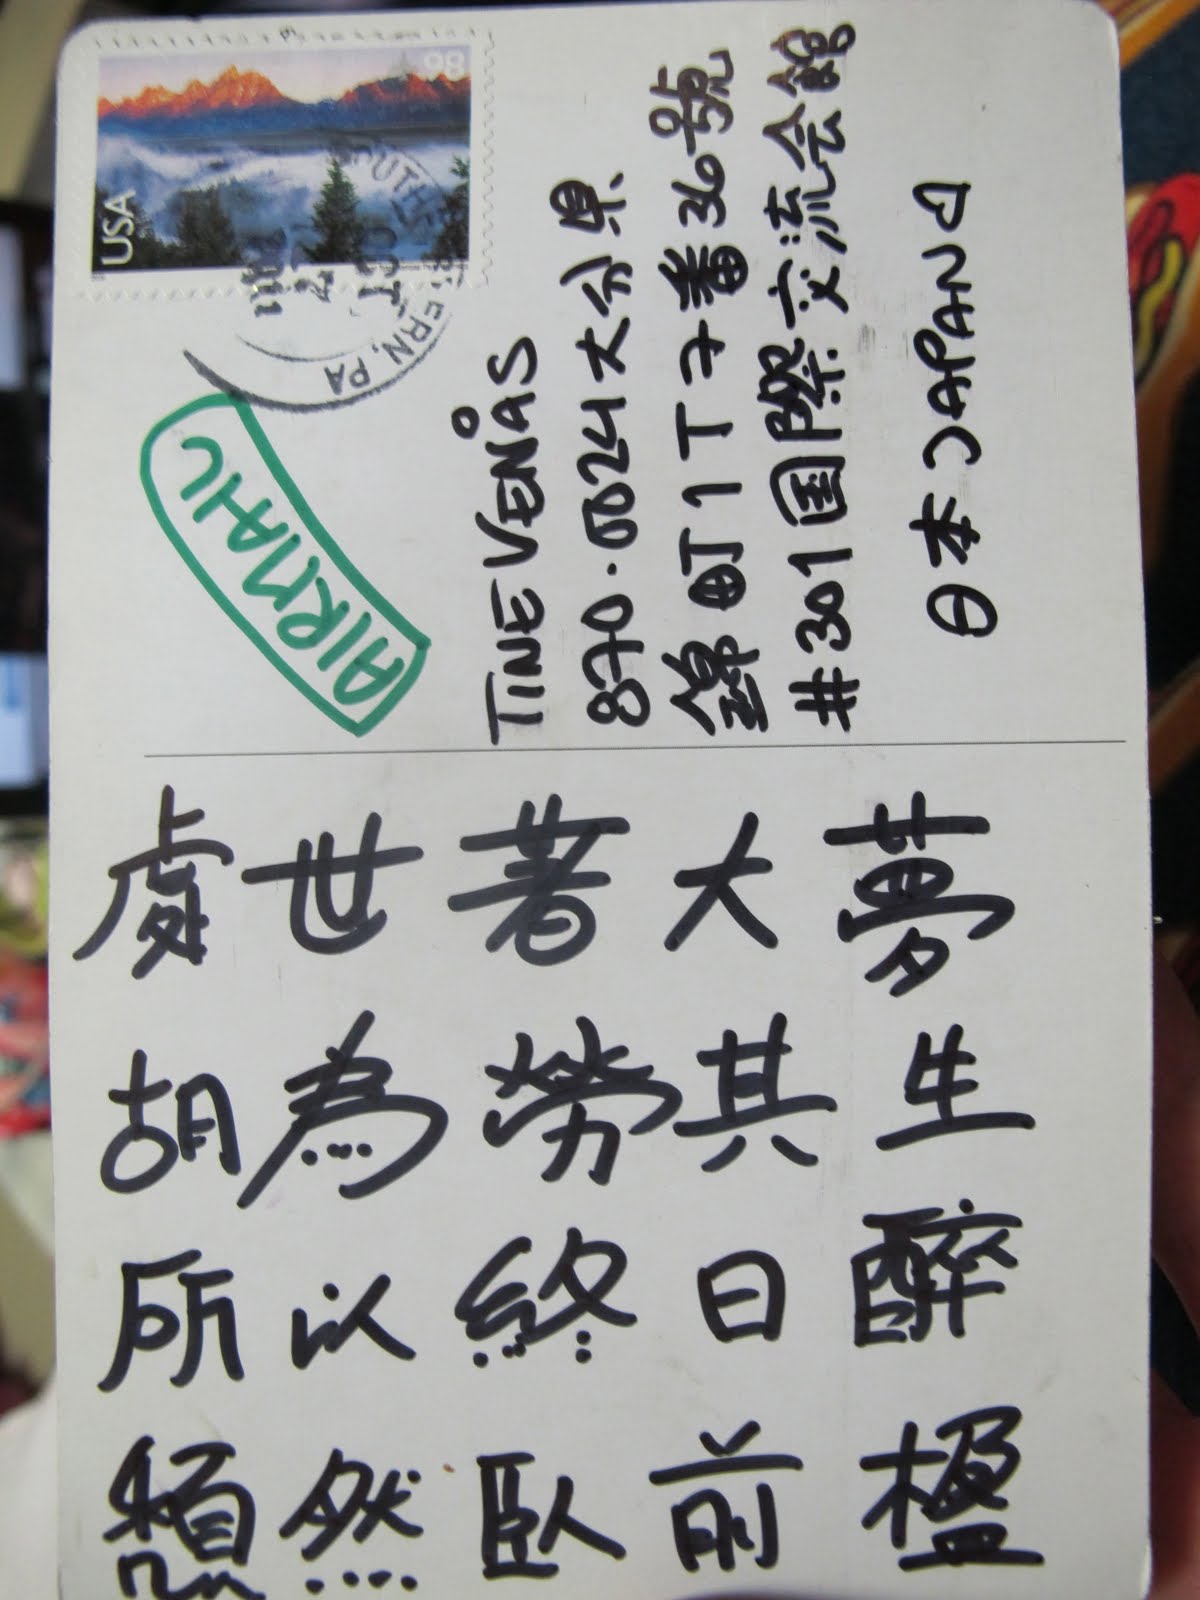 USA
98
ERN, PA
OCT
AIRMAIL
TINE VENÅS
870·0024大分県
錦町1丁7番36號
#301国際交流会館
日本 JAPAN
處世著大夢
胡為勞其生
所以終日醉
頹然臥前楹